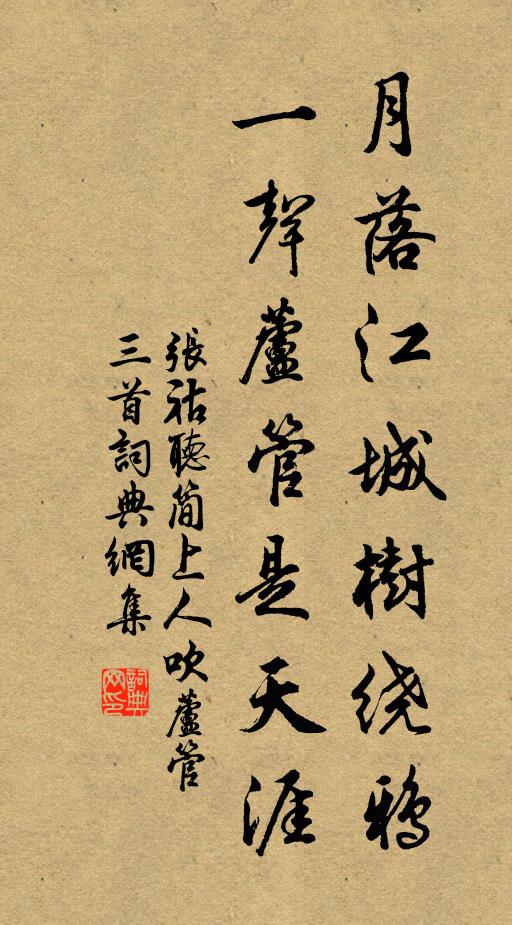 月落江城樹绕鸦
一聲蘆管是天涯
張祜聽简上人吹蘆管
三首詞典網集
詞典网印